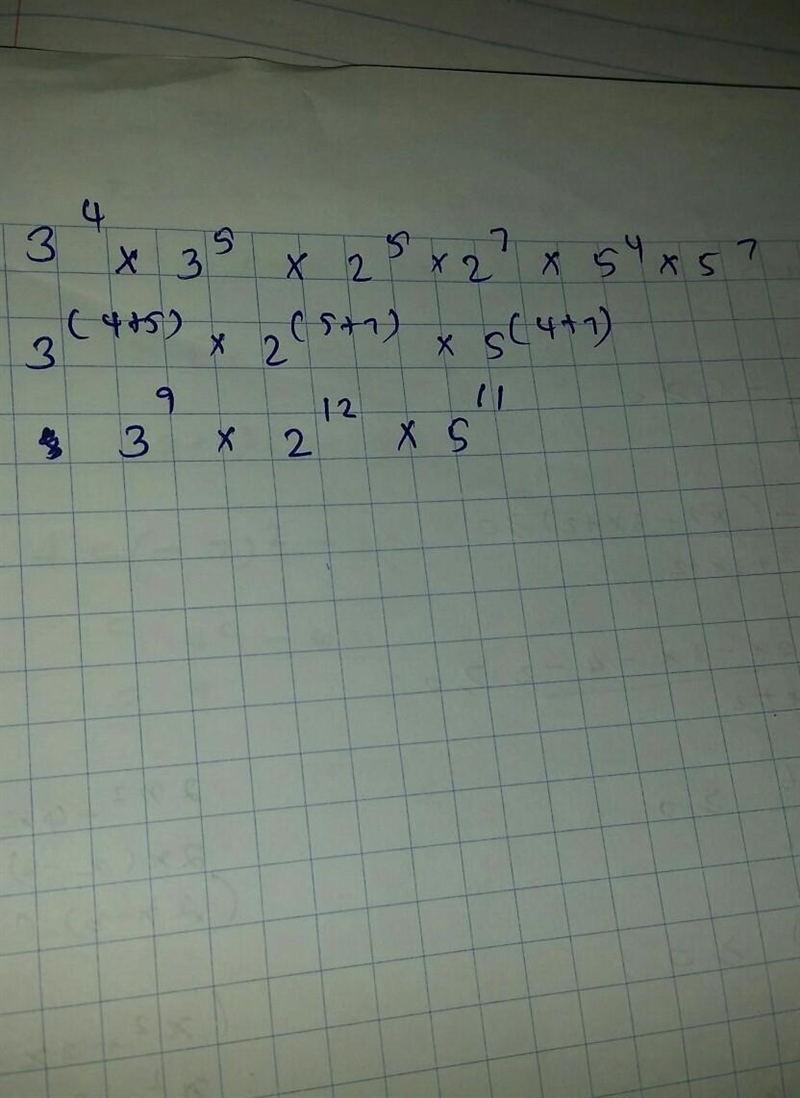 3⁴ × 3⁵ × 2⁵ × 2⁷ × 5⁴ × 5⁷
3⁽⁴⁺⁵⁾ × 2⁽⁵⁺⁷⁾ × 5⁽⁴⁺⁷⁾
3⁹ × 2¹² × 5¹¹